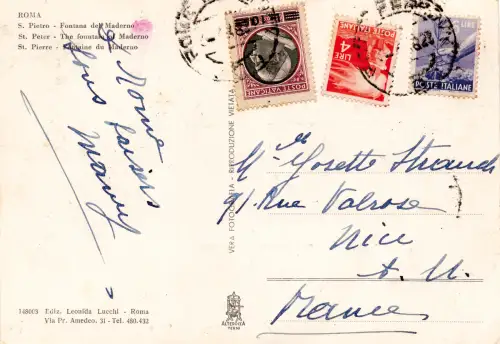 ROMA
S. Pietro - Fontana del Maderno
St. Peter - The fountain of Maderno
St. Pierre - Fontaine du Maderno
Rome
Many
1480CB Ediz. Leonida Lucchi - Roma
Via Pr. Amedeo, 31 - Tel. 480.432
VERA FOTOGRAFIA - RIPRODUZIONE VIETATA
ALTEROCCA
TERNI
POSTE VATICANE
LIRE 4
POSTE ITALIANE
LIRE
POSTE ITALIANE
Mle Josette Strauch
91 Rue Valrose
Nice
A. M.
France